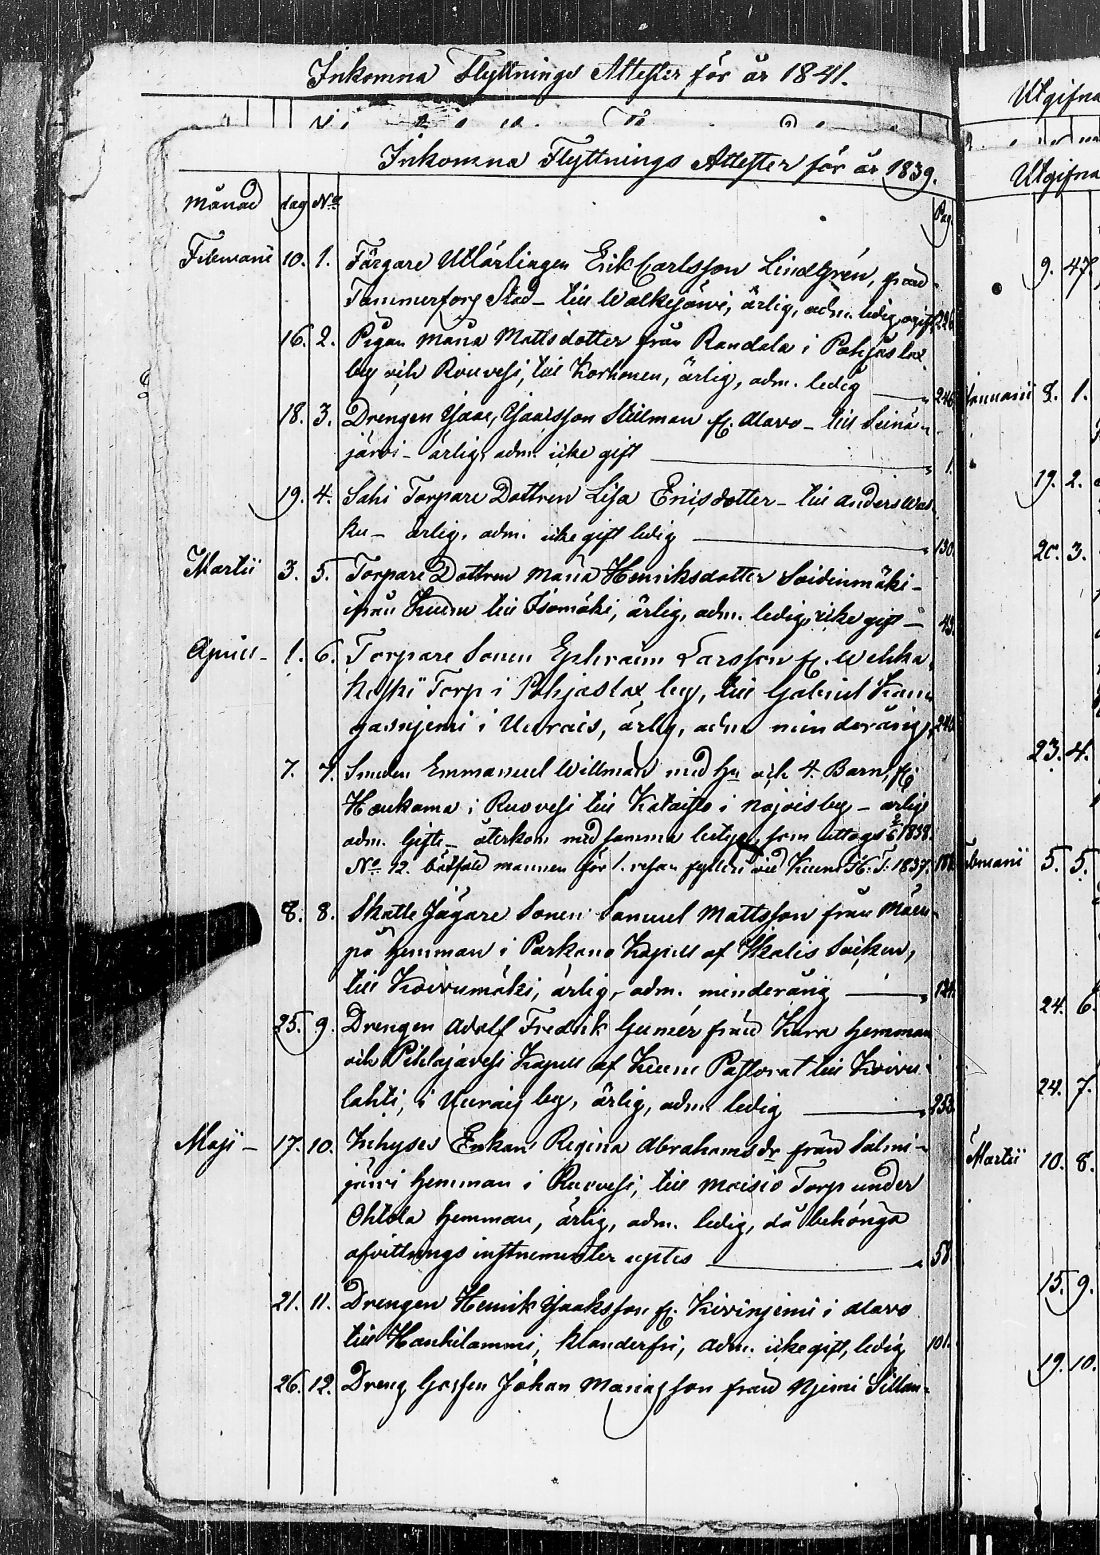 Inkomna Flyttnings Attester för år 1841.
Inkomna Flyttnings Attester för år 1839.
månad dag No Pag
Februarii 10. 1. Färgare Utlärlingen Erik Carlsson Lindgrén, från
Tammerfors Stad – till Walkejärvi, ärlig, adm. ledig ogift 226
16. 2. Pigan Maria Mattsdotter från Randala i Pohjaslax
by och Rouvesi, till Korhonen, ärlig, adm. ledig 246
18. 3. Drengen Isaac Isaacsson Stillman fr. Alavo – till Seinä-
järvi – ärlig, adm. icke gift 1.
19. 4. Torpare Dottren Lisa Ericsdotter – till Anders Was
ku – ärlig, adm. icke gift ledig 130.
Martii 3. 5. Torpare Dottren Maria Henriksdotter Soidinmäki –
ifrån Keuru till Isomäki, ärlig, adm. ledig, icke gift – 43.
Aprill – 1. 6. Torpare Sonen Ephraim Larsson fr. Wehka
koski Torp i Pohjaslax by, till Gabriel Kan-
gasnjemi i Uurais, ärlig, adm. minderårig, 240.
7. 7. Smeden Emmanuel Willman med Hu och 4. Barn, fr.
Haukama i Ruovesi till Kataisto i by – ärlig
adm. Gifte – återkom med samma betyg, som uttogs 1838.
No 12. bötfäld mannen för 1. resan fylleri vid Keuru H. T. 1837. 188.
8. 8. Skatte Jägare Sonen Samuel Mattsson från Mäen-
pä hemman i Parkano Kapell af Ikalis Socken,
till Koivumäki, ärlig, adm. minderårig 124.
25. 9. Drengen Adolf Fredrik Gumér från hemman
och Pihlajavesi Kapell af Keuru Pastorat till Koivu-
lahti, i Uurais by, ärlig, adm. ledig 253.
Maji – 17. 10. Inhyses Enkan Regina Abrahamsdr från Salmi-
järvi hemman i Ruovesi, till Moisio Torp under
Ohtola hemman, ärlig, adm. ledig, då behöriga
afvittrings instrumenter uptes 58
21. 11. Drengen Henrik Isaksson fr. Kivinjemi i Alavo
till Hankilammi, klanderfri, adm. icke gift, ledig 101.
26. 12. Dreng Gossen Johan Mariasson från Njemi Sillan-
Utgifna
Utgifna
9. 47.
Januarii 8. 1.
19. 2.
20. 3.
23. 4.
Februarii 5. 5.
24. 6.
24. 7.
Martii 10. 8.
15. 9.
19. 10.